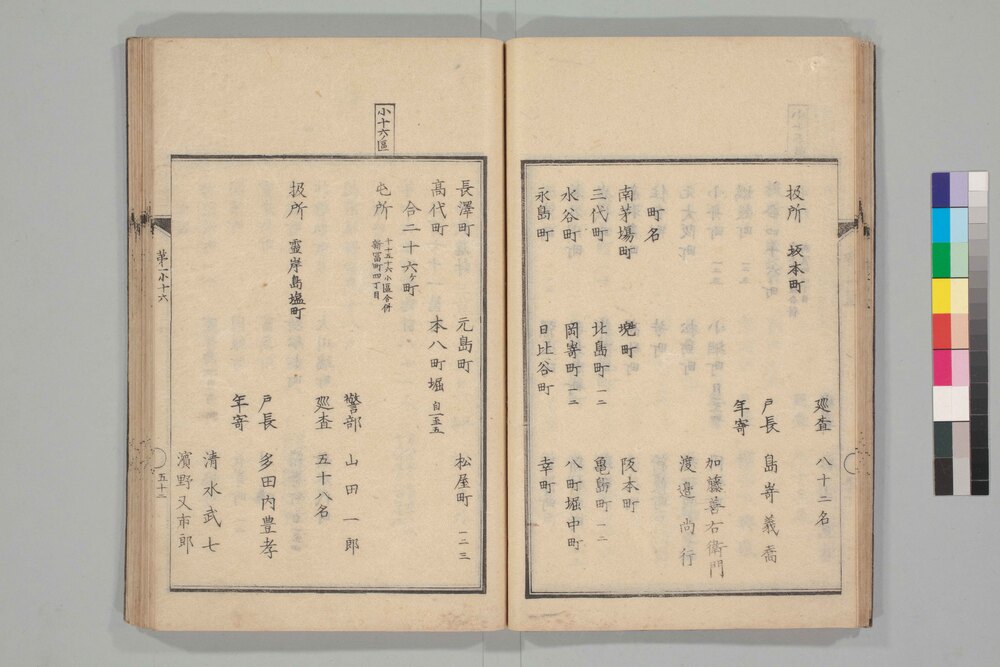 巡査 八十二名
扱所 坂本町
戸長 島嵜義喬
年寄 加藤善右衛門
渡邉尚行
町名
南茅場町 堺町 阪本町
三代町 北島町一二 亀島町一二
水谷町 岡嵜町一二 八町堀中町
永島町 日比谷町 幸町
長澤町 元島町 松屋町一二三
高代町 本八町堀自一至五
合二十六ヶ町
小十六區
屯所 十五十六小區合併 新富町四丁目
警部 山田一郎
巡査 五十八名
扱所 靈岸島塩町
戸長 多田内豊孝
年寄 清水武七
濱野又市郎
第一小十六
五十二